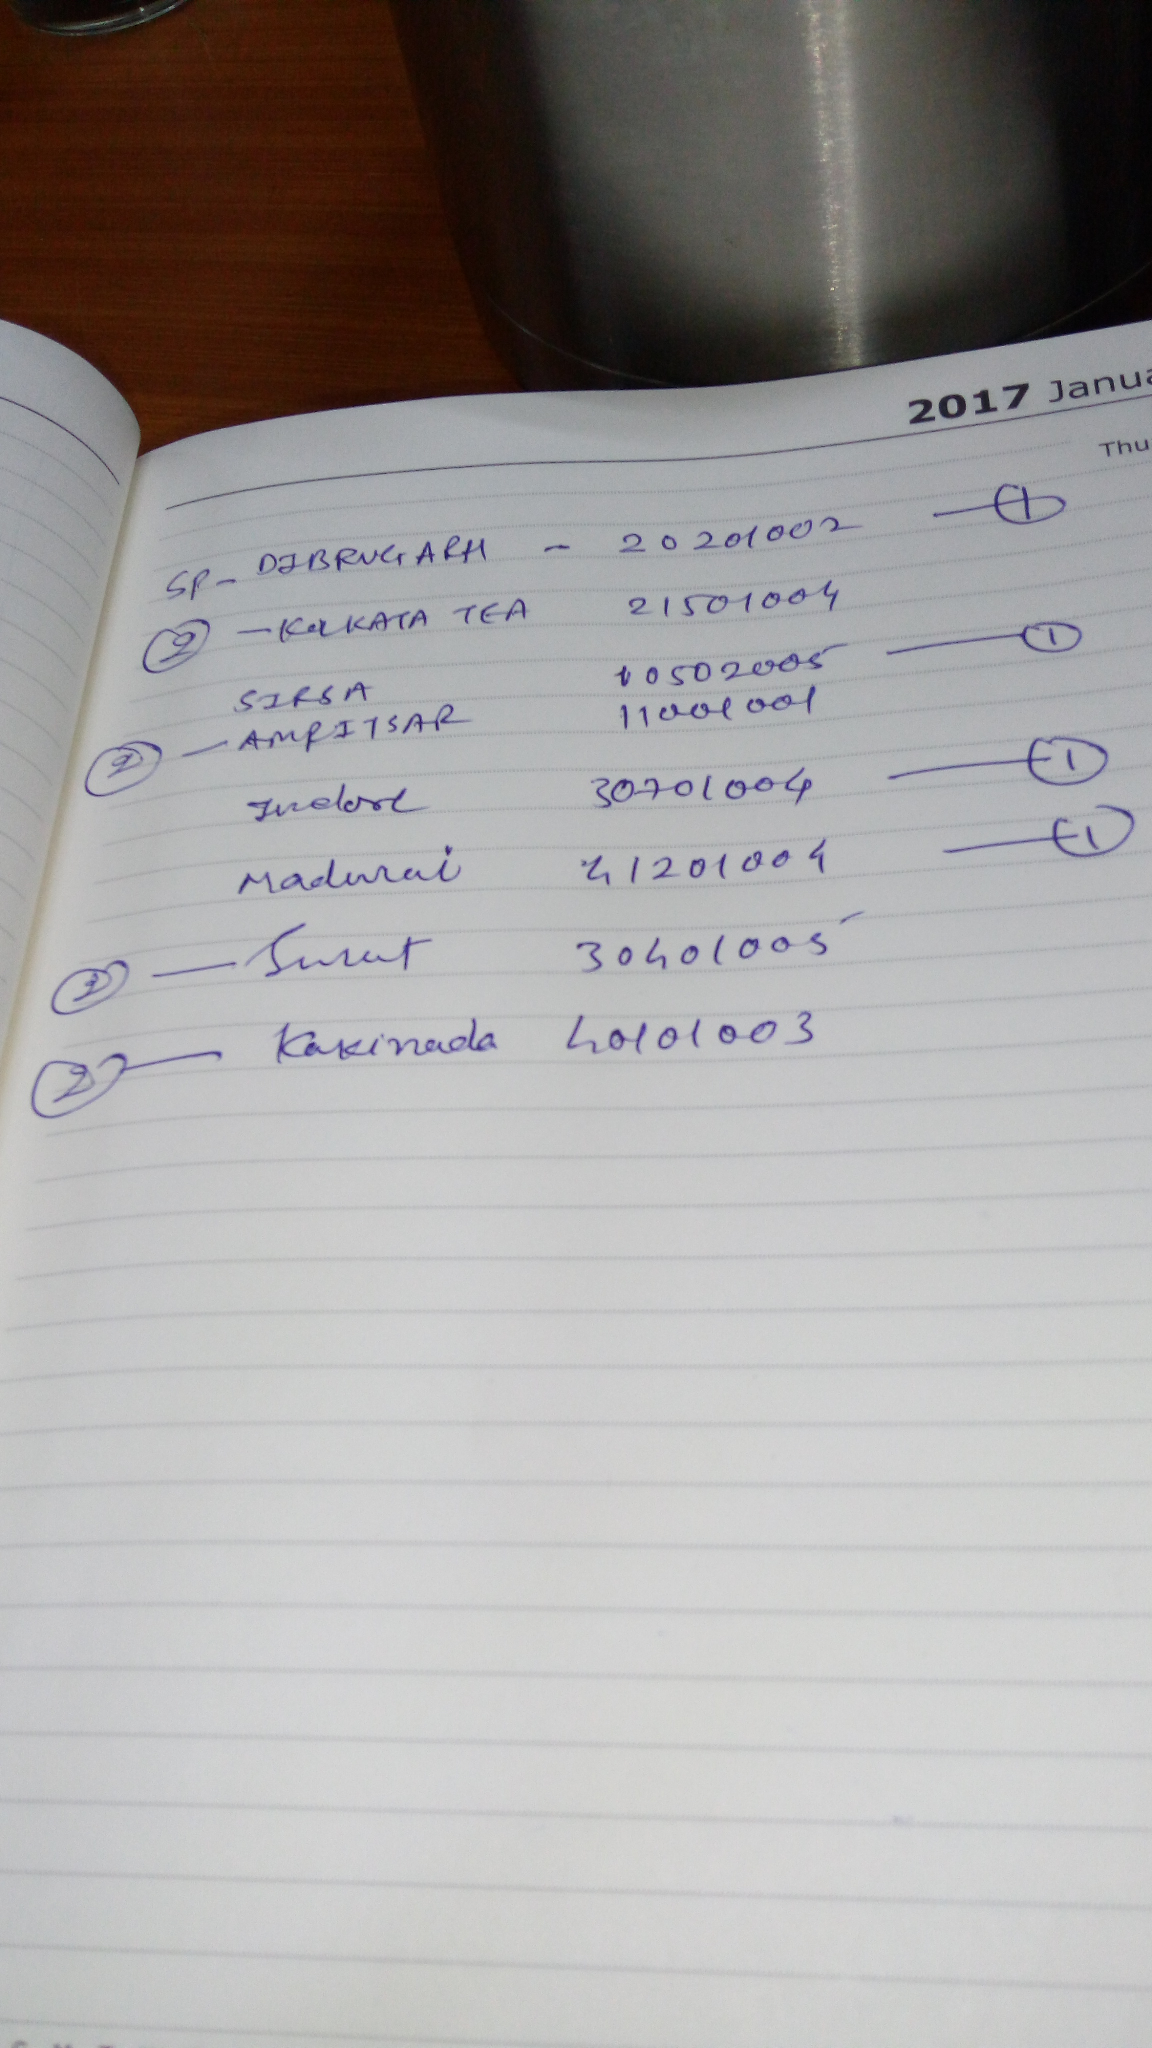 2017 Janua
Thu
SP - DIBRUGARH - 20201002 — 1
2 — KOLKATA TEA 21501004
SIRSA 10502005 — 1
2 — AMRITSAR 11001001
Indore 30701004 — 1
Madurai 41201004 — 1
2 — Surat 30401005
2 — Kakinada 40101003